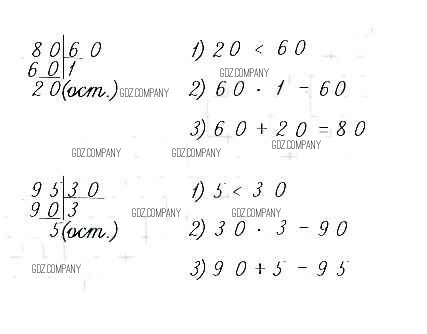 80|60 1) 20 < 60
60|1 GDZ.COMPANY
20(ост.) GDZ.COMPANY 2) 60 · 1 – 60
3) 60 + 20 = 80
GDZ.COMPANY GDZ.COMPANY GDZ.COMPANY
95|30 1) 5 < 30
90|3 GDZ.COMPANY GDZ.COMPANY
5(ост.) 2) 30 · 3 – 90
GDZ.COMPANY 3) 90 + 5 – 95